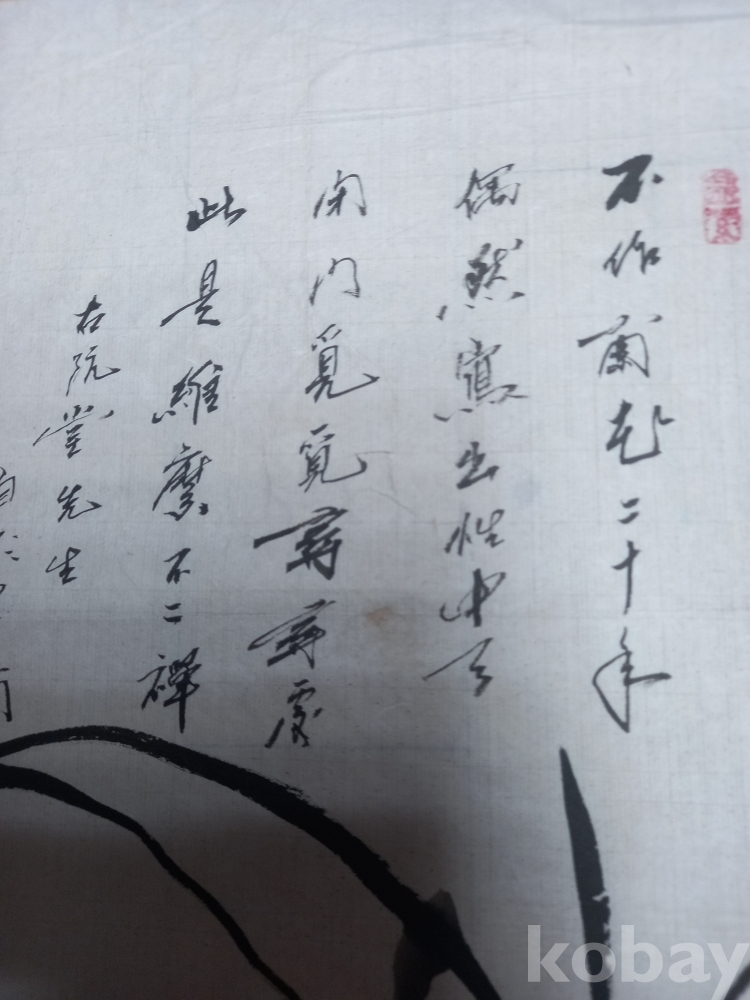 不作蘭花二十年
偶然寫出性中天
閉門覓覓尋尋處
此是維摩不二禪
右阮堂先生
kobay